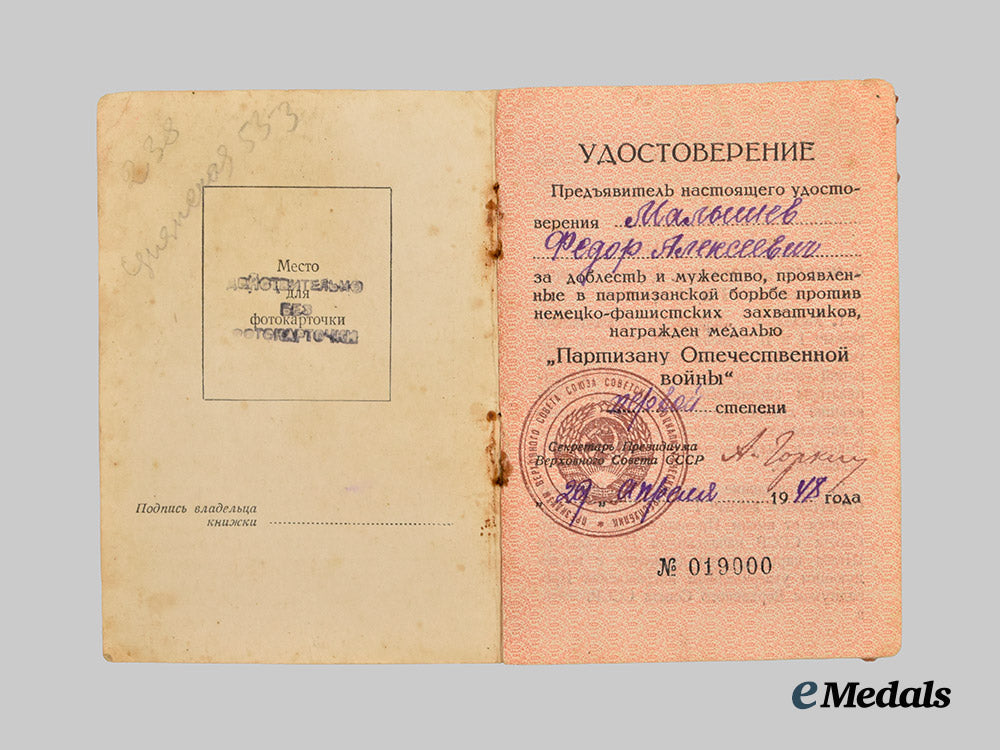 238
533
Место
для
фотокарточки
ДЕЙСТВИТЕЛЬНО
БЕЗ
ФОТОКАРТОЧКИ
Подпись владельца
книжки
УДОСТОВЕРЕНИЕ
Предъявитель настоящего удосто-
верения Малышев
Федор Алексеевич
за доблесть и мужество, проявлен-
ные в партизанской борьбе против
немецко-фашистских захватчиков,
награжден медалью
„Партизану Отечественной
войны“
первой степени
Секретарь Президиума
Верховного Совета СССР А. Горкин
„29„ апреля 1948 года
№ 019000
ПРЕЗИДИУМ ВЕРХОВНОГО СОВЕТА СОЮЗА СОВЕТСКИХ
eMedals